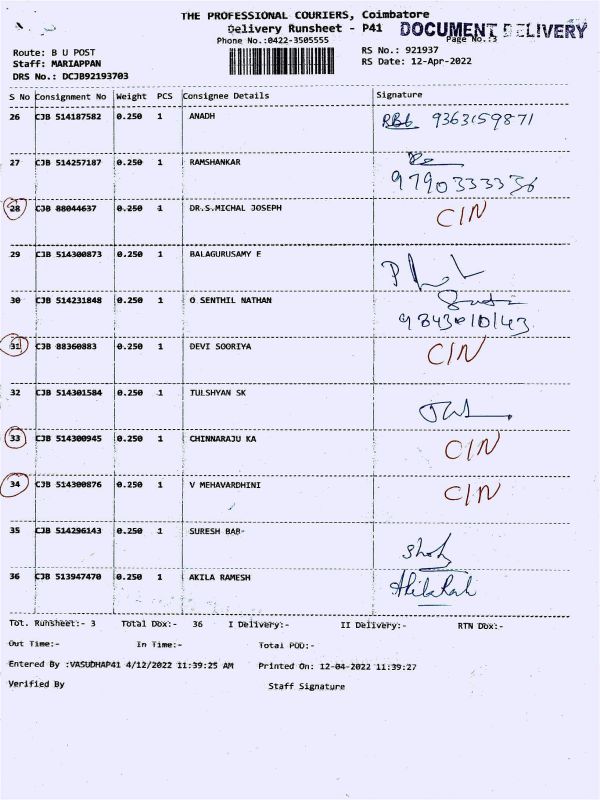 THE PROFESSIONAL COURIERS, Coimbatore
Delivery Runsheet - P41 DOCUMENT DELIVERY
Phone No.:0422-3505555 Page No.:3
Route: B U POST RS No.: 921937
Staff: MARIAPPAN RS Date: 12-Apr-2022
DRS No.: DCJB92193703
S No Consignment No Weight PCS Consignee Details Signature
26 CJB 514187582 0.250 1 ANADH 9363159871
27 CJB 514257187 0.250 1 RAMSHANKAR
9790333336
28 CJB 88044637 0.250 1 DR.S.MICHAL JOSEPH C/N
29 CJB 514300873 0.250 1 BALAGURUSAMY E
30 CJB 514231848 0.250 1 O SENTHIL NATHAN
9843010143
31 CJB 88360883 0.250 1 DEVI SOORIYA C/N
32 CJB 514301584 0.250 1 TULSHYAN SK
33 CJB 514300945 0.250 1 CHINNARAJU KA C/N
34 CJB 514300876 0.250 1 V MEHAVARDHINI C/N
35 CJB 514296143 0.250 1 SURESH BAB-
36 CJB 513947470 0.250 1 AKILA RAMESH
Tot. Runsheet:- 3 Total Dox:- 36 I Delivery:- II Delivery:- RTN Dox:-
Out Time:- In Time:- Total POD:-
Entered By :VASUDHAP41 4/12/2022 11:39:25 AM Printed On: 12-04-2022 11:39:27
Verified By Staff Signature